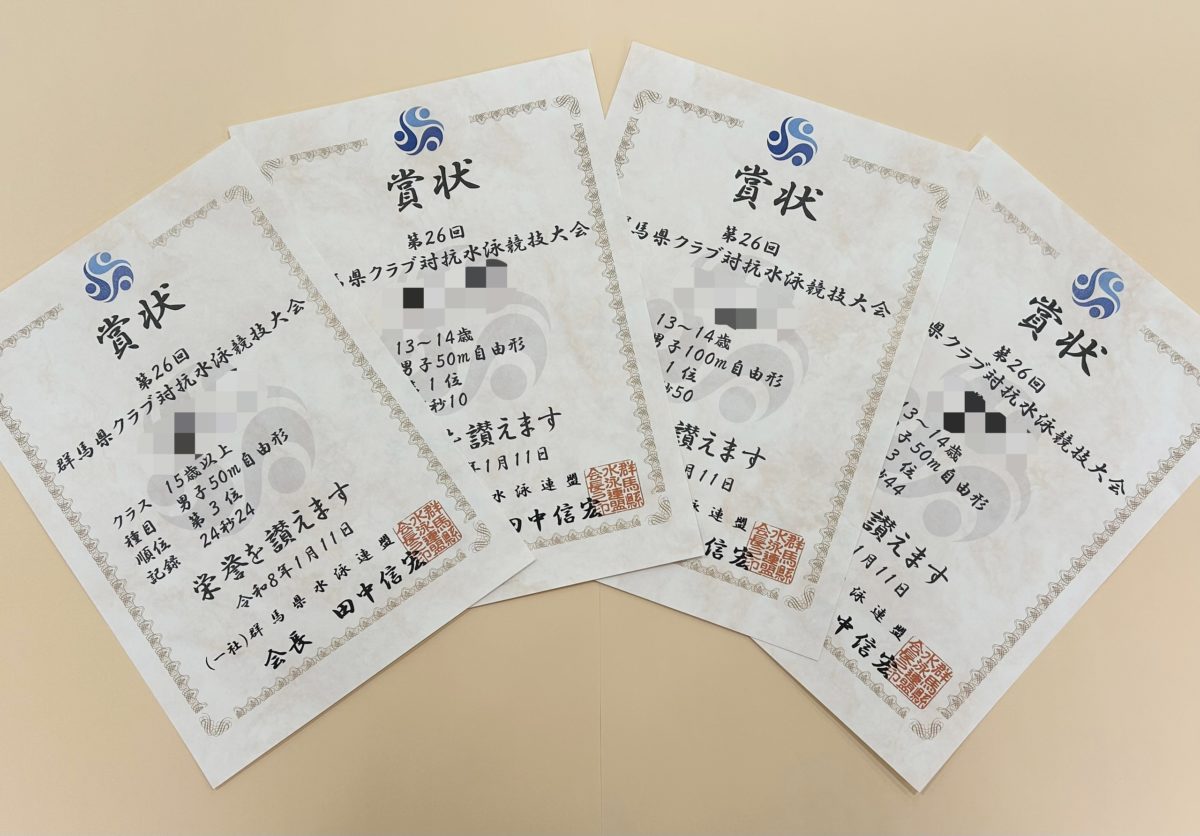 賞状
第26回
群馬県クラブ対抗水泳競技大会
クラス 15歳以上
種目 男子50m自由形
順位 第3位
記録 24秒24
栄誉を讃えます
令和8年1月11日
(一社)群馬県水泳連盟
会長 田中信宏
群馬縣水泳連盟会長之印
賞状
第26回
馬県クラブ対抗水泳競技大会
13~14歳
男子50m自由形
1位
秒10
讃えます
年1月11日
水泳連盟
田中信宏
群馬縣水泳連盟会長之印
賞状
第26回
馬県クラブ対抗水泳競技大会
13~14歳
男子100m自由形
1位
秒50
讃えます
月11日
泳連盟
信宏
群馬縣水泳連盟会長之印
賞状
第26回
県クラブ対抗水泳競技大会
13~14歳
子50m自由形
3位
44
讃えます
1月11日
泳連盟
中信宏
群馬縣水泳連盟会長之印